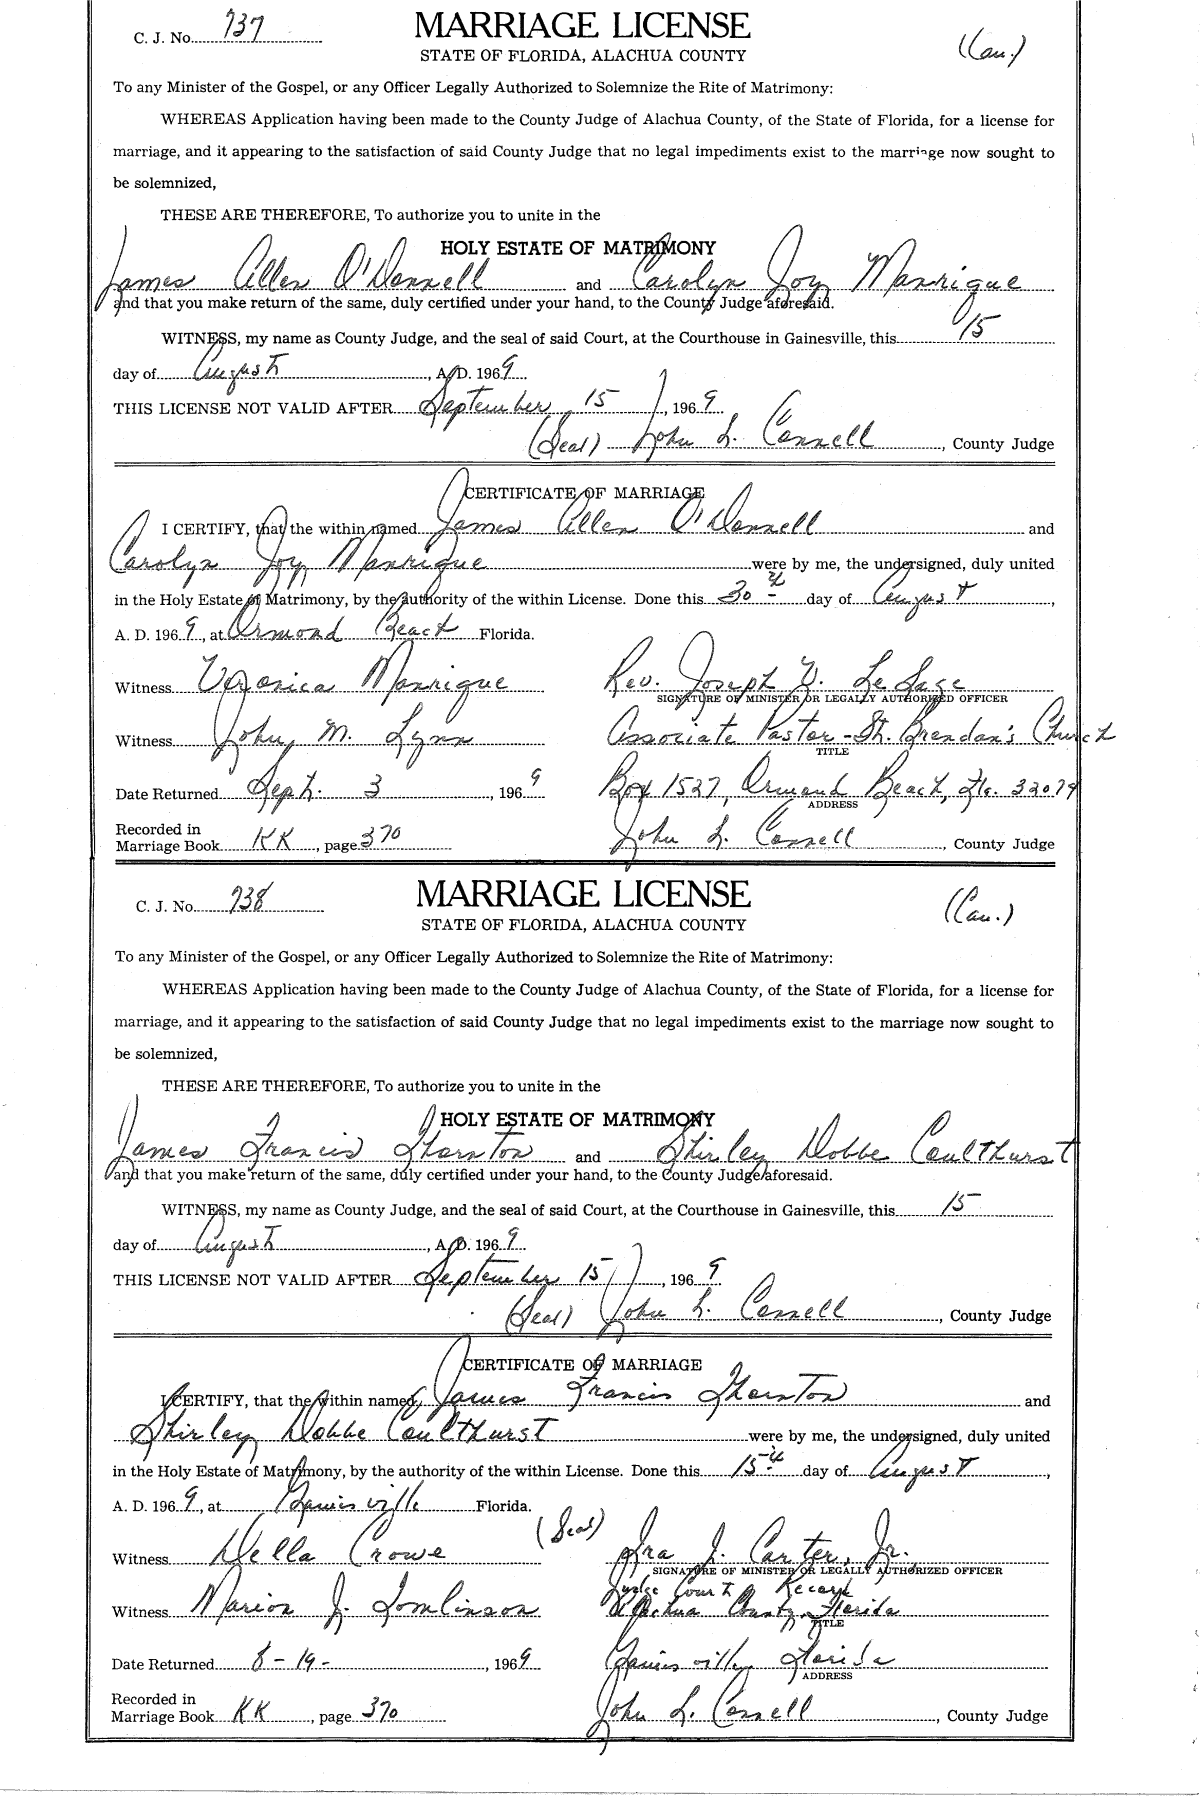 C. J. No. 737 MARRIAGE LICENSE
STATE OF FLORIDA, ALACHUA COUNTY (Cau.)
To any Minister of the Gospel, or any Officer Legally Authorized to Solemnize the Rite of Matrimony:
WHEREAS Application having been made to the County Judge of Alachua County, of the State of Florida, for a license for
marriage, and it appearing to the satisfaction of said County Judge that no legal impediments exist to the marriage now sought to
be solemnized,
THESE ARE THEREFORE, To authorize you to unite in the
HOLY ESTATE OF MATRIMONY
James Allen O'Donnell and Carolyn Joy Manrique
and that you make return of the same, duly certified under your hand, to the County Judge aforesaid.
WITNESS, my name as County Judge, and the seal of said Court, at the Courthouse in Gainesville, this 15
day of August, A. D. 1969
THIS LICENSE NOT VALID AFTER September 15, 1969
(Seal) John L. Connell, County Judge
CERTIFICATE OF MARRIAGE
I CERTIFY, that the within named James Allen O'Donnell and
Carolyn Joy Manrique were by me, the undersigned, duly united
in the Holy Estate of Matrimony, by the authority of the within License. Done this 30th day of August,
A. D. 1969, at Ormond Beach Florida.
Witness Veronica Manrique Rev. Joseph V. LeSage
SIGNATURE OF MINISTER OR LEGALLY AUTHORIZED OFFICER
Witness John M. Lynn Associate Pastor - St. Brendan's Church
TITLE
Date Returned Sept. 3, 1969 Box 1527, Ormond Beach, Fla. 32074
ADDRESS
Recorded in
Marriage Book KK, page 370 John L. Connell, County Judge
C. J. No. 738 MARRIAGE LICENSE (Cau.)
STATE OF FLORIDA, ALACHUA COUNTY
To any Minister of the Gospel, or any Officer Legally Authorized to Solemnize the Rite of Matrimony:
WHEREAS Application having been made to the County Judge of Alachua County, of the State of Florida, for a license for
marriage, and it appearing to the satisfaction of said County Judge that no legal impediments exist to the marriage now sought to
be solemnized,
THESE ARE THEREFORE, To authorize you to unite in the
HOLY ESTATE OF MATRIMONY
James Francis Thornton and Shirley Dobbe Coulthurst
and that you make return of the same, duly certified under your hand, to the County Judge aforesaid.
WITNESS, my name as County Judge, and the seal of said Court, at the Courthouse in Gainesville, this 15
day of August, A. D. 1969
THIS LICENSE NOT VALID AFTER September 15, 1969
(Seal) John L. Connell, County Judge
CERTIFICATE OF MARRIAGE
I CERTIFY, that the within named James Francis Thornton and
Shirley Dobbe Coulthurst were by me, the undersigned, duly united
in the Holy Estate of Matrimony, by the authority of the within License. Done this 15th day of August,
A. D. 1969, at Gainesville Florida.
Witness Della Crowe (Seal) Ira J. Carter, Jr.
SIGNATURE OF MINISTER OR LEGALLY AUTHORIZED OFFICER
Judge Court of Record
Witness Marion J. Tomlinson Alachua County, Florida
TITLE
Date Returned 8-19-, 1969 Gainesville, Florida
ADDRESS
Recorded in
Marriage Book KK, page 370 John L. Connell, County Judge